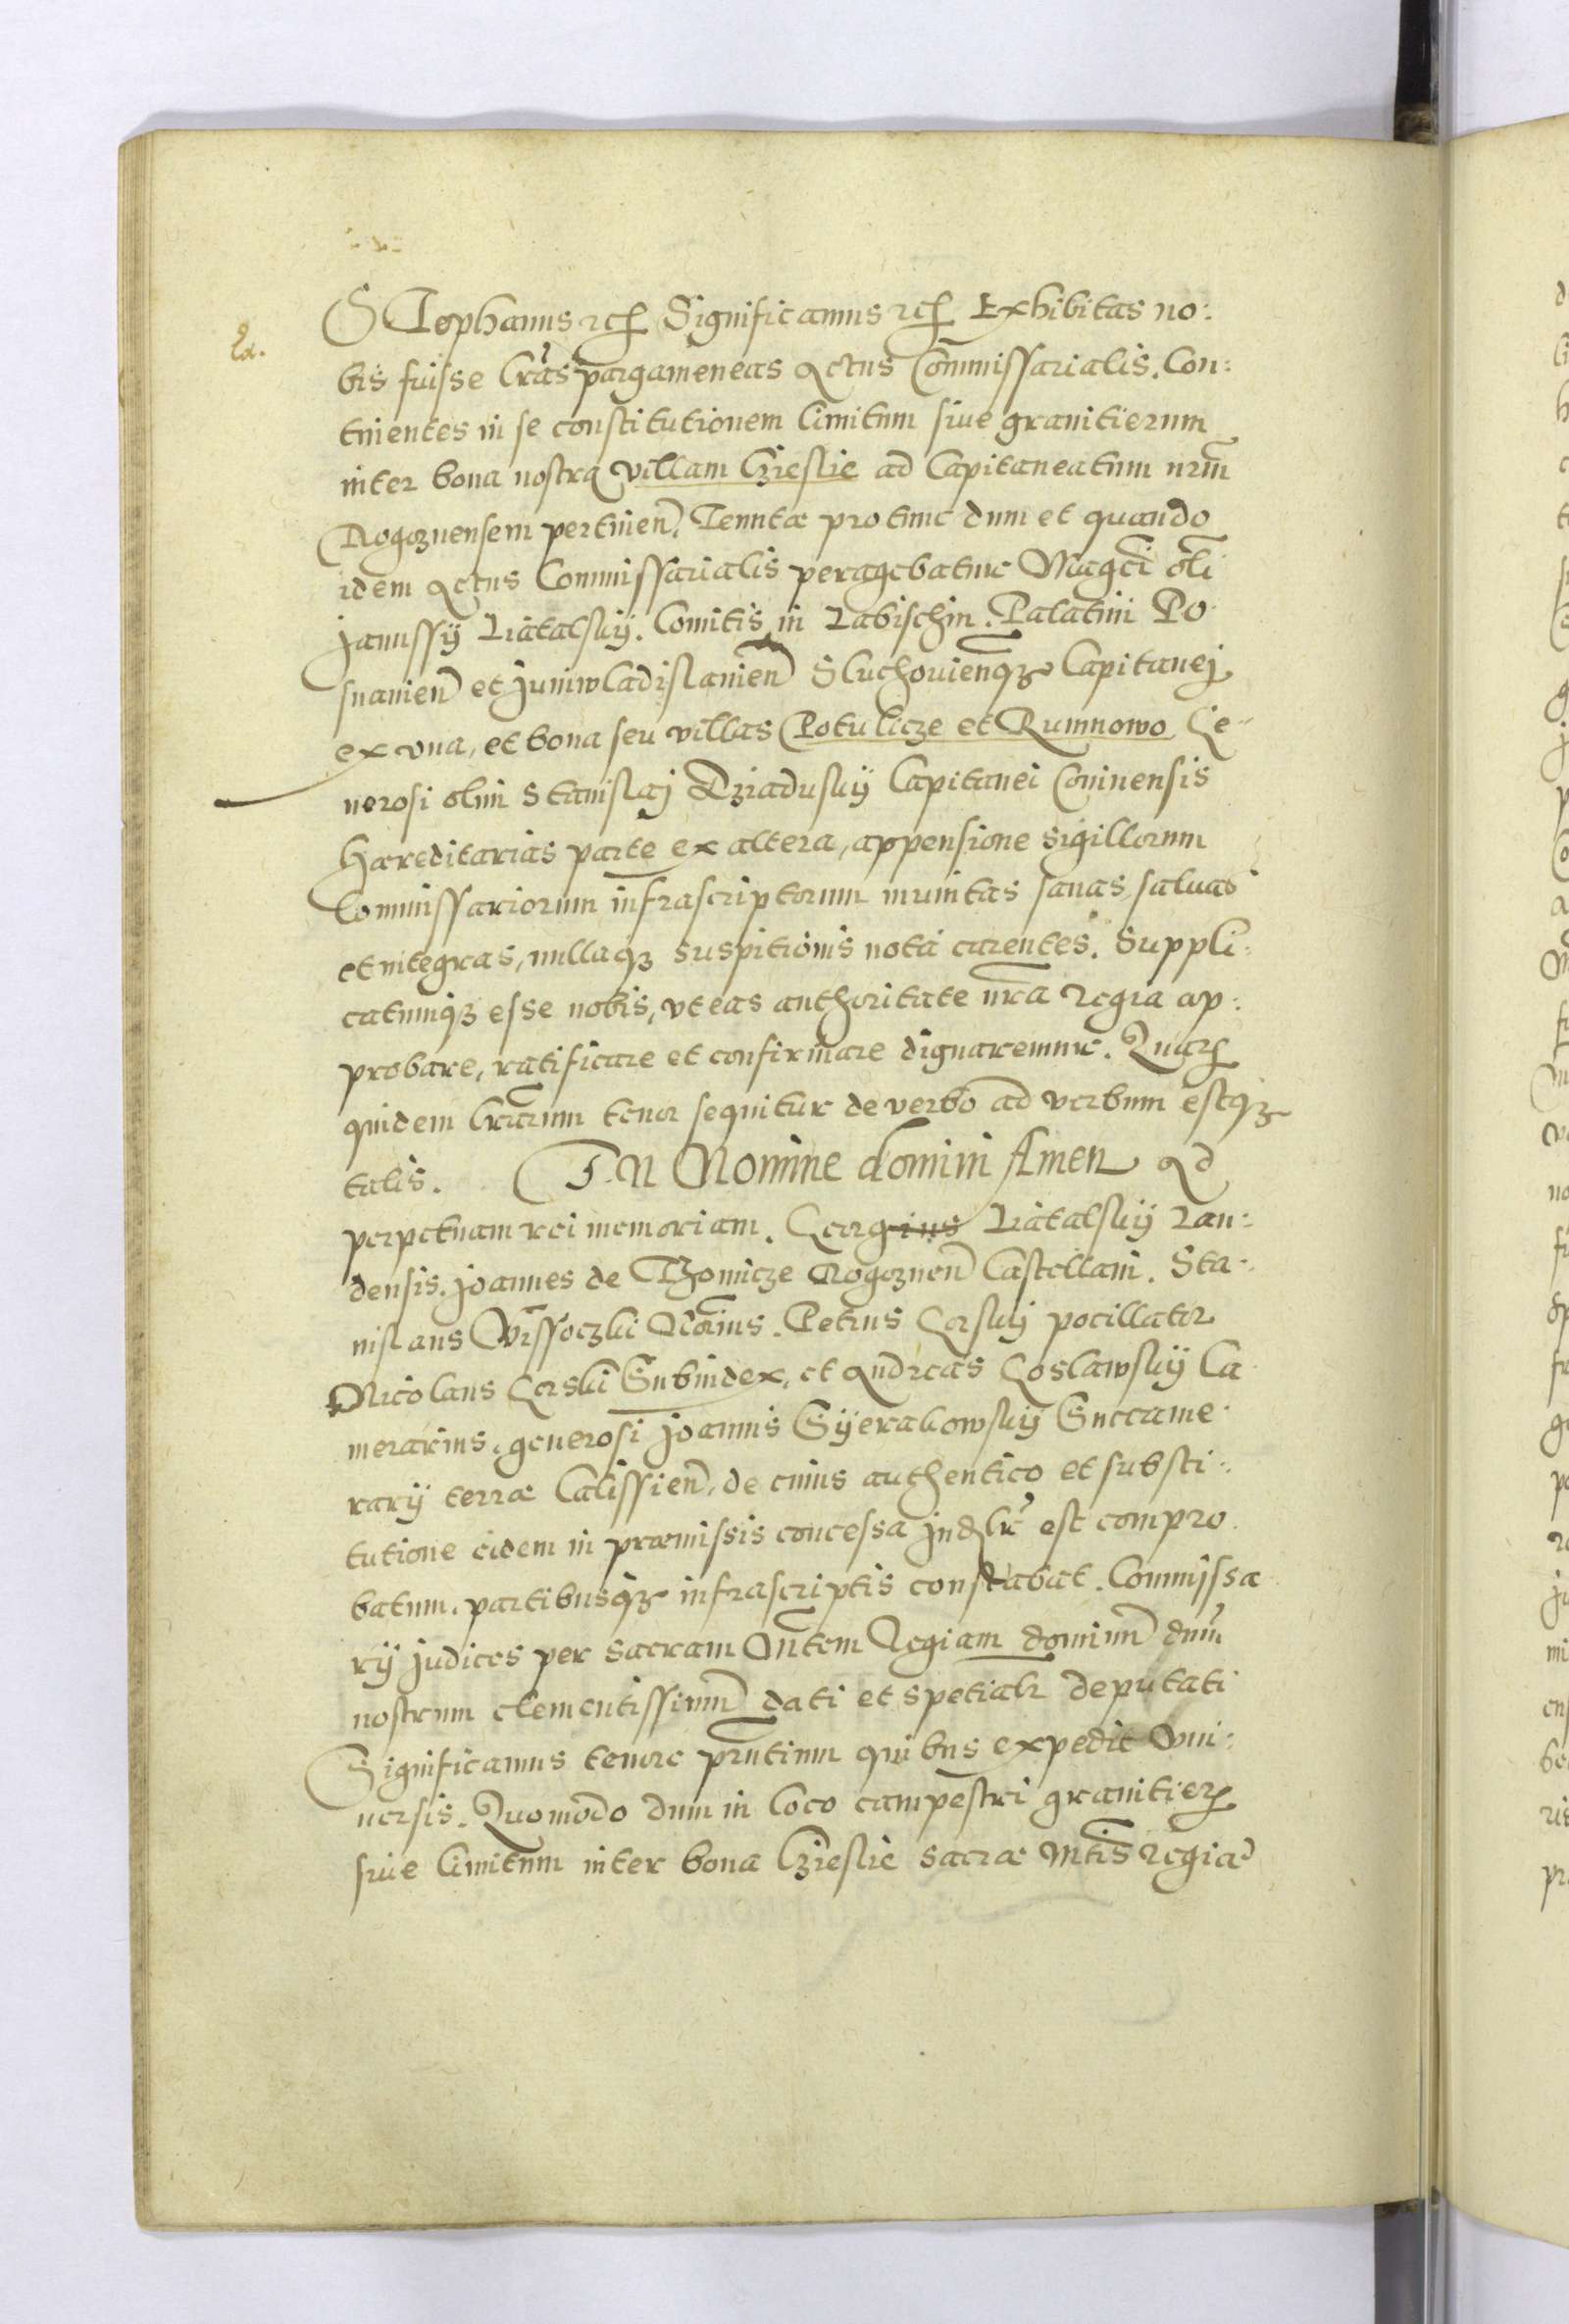 Ex.
STephanus etc. Significamus etc. Exhibitas no:
bis fuisse Lrãs pargameneas Actus Commissarialis. Con:
tinentes in se constitutionem limitum siue granitierum
inter bona nostra villam Czieslie ad Capitaneatum nrm̃
Rogoznensem pertineñ. Tenutæ pro tunc dum et quando
idem Actus Commissarialis peragebatur Magci oli
Janussÿ Latalskÿ. Comitis in Labischin. Palatini Po
snanieñ et Juniwladislauieñ Sluchouieñqз Capitanej
ex vna, et bona seu villas Potulicze et Rumnowo Ge-
nerosi olim Stanislaj Dziaduskÿ Capitanei Coninensis
Hæreditarias parte ex altera, appensione sigillorum
Commissariorum infrascriptorum munitas sanas, saluas
et integras, nullaqз suspitionis nota carentes. Suppli:
catumqз esse nobis, vt eas authoritate nrã regia ap:
probare, ratificare et confirmare dignaremur. Quarꝝ
quidem Lrarum tenor sequitur de verbo ad verbum estqз
talis. IN Nomine domini Amen Ad
perpetuam rei memoriam. Georgius Latalskÿ Lan:
densis. Joannes de Thomicze Rogozneñ Castellani. Sta:
nislaus Wissoczki Notarius. Petrus Gorskÿ pocillator
Nicolaus Gorski Subiudex, et Andreas Goslawskÿ Ca
merarius, generosi Joannis Sÿerakowskÿ Succame:
rarÿ terræ Calissieñ, de cuius authentico et substi:
tutione eidem in præmissis concessa est compro
batum, partibusqз infrascriptis constabat. Commissa
rÿ Judices per sacram Mtem Regiam dominũ dnm̃
nostrum clementissimũ dati et spetialr deputati
Significamus tenore prntium quibus expedit vni:
uersis. Quomodo dum in loco campestri granitierꝝ
siue limitum inter bona Czieslie sacræ Mtis Regiæ